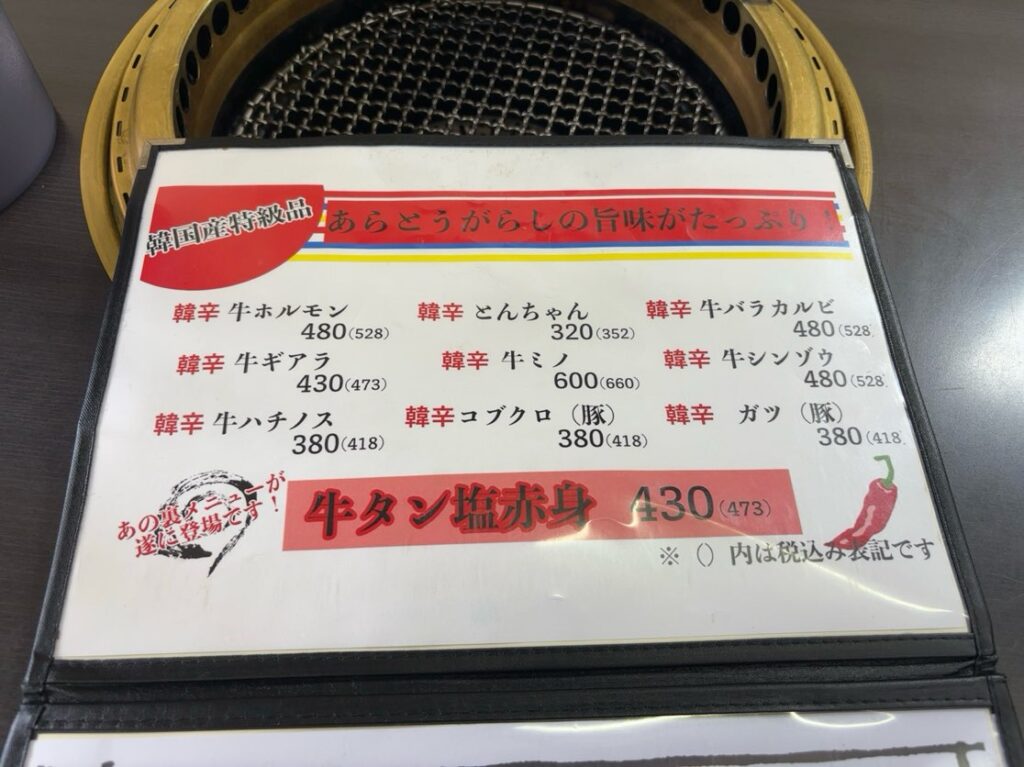 韓国産特級品
あらとうがらしの旨味がたっぷり！
韓辛 牛ホルモン
480(528)
韓辛 とんちゃん
320(352)
韓辛 牛バラカルビ
480(528
韓辛 牛ギアラ
430(473)
韓辛 牛ミノ
600(660)
韓辛 牛シンゾウ
480(528
韓辛 牛ハチノス
380(418)
韓辛 コブクロ（豚）
380(418)
韓辛 ガツ（豚）
380(418
あの裏メニューが
遂に登場です！
牛タン塩赤身 430(473)
※（）内は税込み表記です